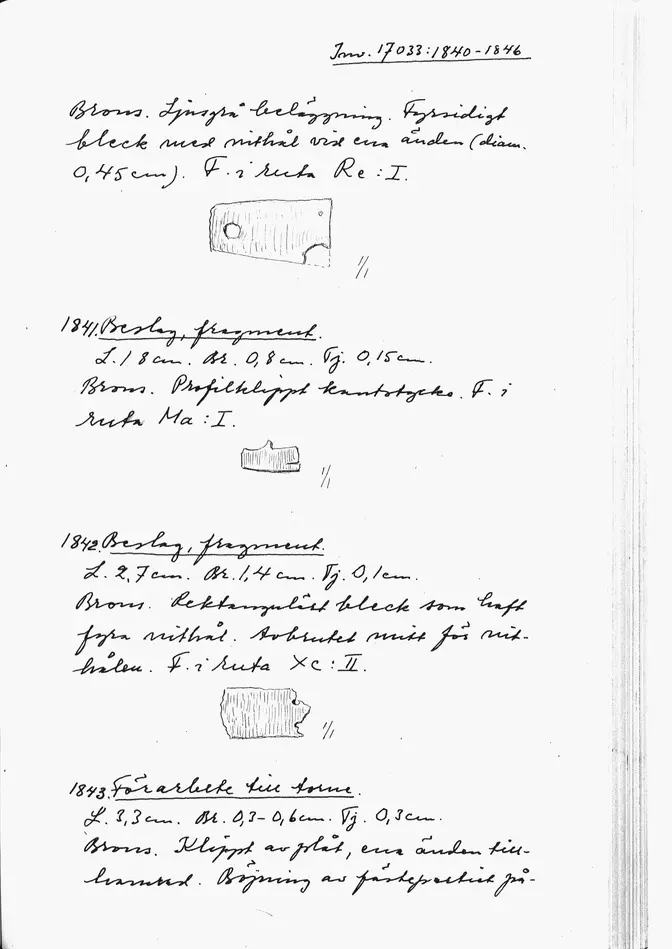 Inv. 17033:1840-1846
Brons. Ljusgrå beläggning. Fyrsidigt
bleck med nithål vid ena änden (diam.
0,45 cm). F. i ruta Re : I.
1/1
1841. Beslag, fragment.
L. 1 8 cm. Br. 0,8 cm. Tj. 0,15 cm.
Brons. Profilklippt kantstycke. F. i
ruta Ma : I.
1/1
1842. Beslag, fragment.
L. 2,7 cm. Br. 1,4 cm. Tj. 0,1 cm.
Brons. Rektangulärt bleck som haft
fyra nithål. Avbrutet mitt för nit-
hålen. F. i ruta Xc : II.
1/1
1843. Förarbete till torne.
L. 3,3 cm. Br. 0,3-0,6 cm. Tj. 0,3 cm.
Brons. Klippt av plåt, ena änden till-
hamrad. Böjning av fästepartiet på-